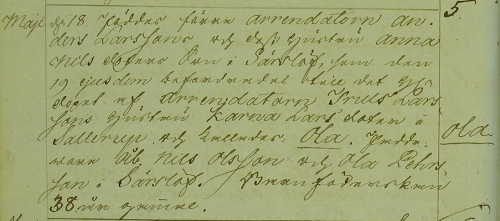 Maji d. 18. föddes förre arrendatorn An- 5.
ders Larssons och dess hustru Anna
Nils dotters Son i Särslöf, som den
19 ejusdem befordrades till det H.
dopet af arrendatorn Truls Lars
sons hustru Karna Lars dotter i
Sallerup och kallades Ola. Fadd. Ola
wore åb. Nils Olsson och Ola Pehrs
son i Särslöf. Barnföderskan
38 år gammal.